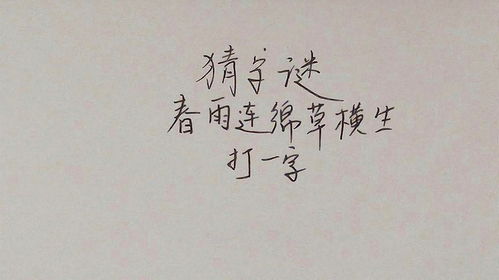 猜字谜
春雨连绵草横生
打一字